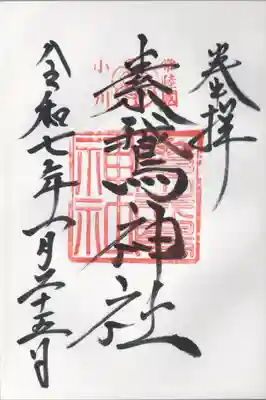 奉拝
常陸國
小川
素鵞神社
神社
令和七年一月二十五日